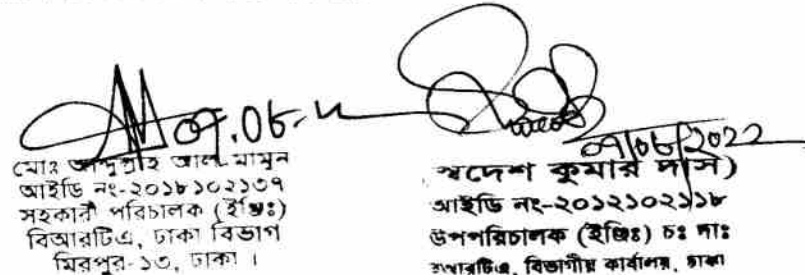 ০৭.০৮.২২
মোঃ আব্দুল্লাহ আল মামুন
আইডি নং-২০১৮১০২১৩৭
সহকারী পরিচালক (ইঞ্জিঃ)
বিআরটিএ, ঢাকা বিভাগ
মিরপুর-১৩, ঢাকা ।
০৭/০৮/2022
স্বদেশ কুমার দাস)
আইডি নং-২০১২১০২১১৮
উপপরিচালক (ইঞ্জিঃ) চঃ দাঃ
বিআরটিএ, বিভাগীয় কার্যালয়, ঢাকা